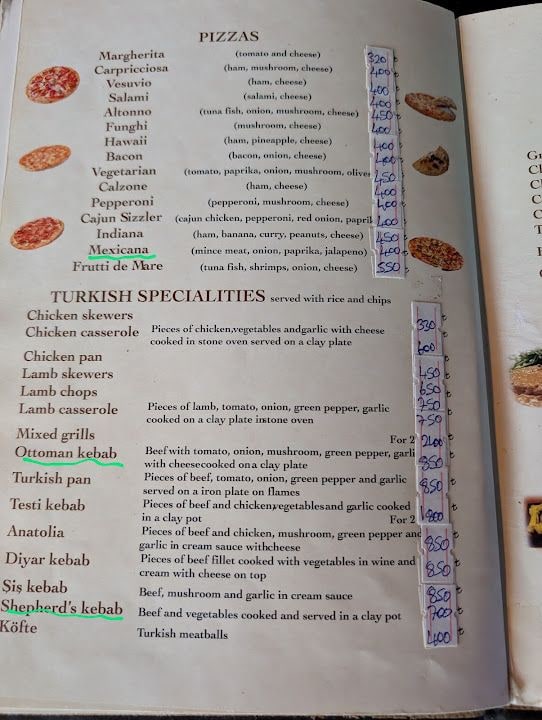 PIZZAS
Margherita (tomato and cheese) 320 ₺
Carpricciosa (ham, mushroom, cheese) 400
Vesuvio (ham, cheese) 400
Salami (salami, cheese) 400
Altonno (tuna fish, onion, mushroom, cheese) 450
Funghi (mushroom, cheese) 400
Hawaii (ham, pineapple, cheese) 400
Bacon (bacon, onion, cheese) 400
Vegetarian (tomato, paprika, onion, mushroom, olive 450
Calzone (ham, cheese) 400
Pepperoni (pepperoni, mushroom, cheese) 400
Cajun Sizzler (cajun chicken, pepperoni, red onion, papri 400
Indiana (ham, banana, curry, peanuts, cheese) 450
Mexicana (mince meat, onion, paprika, jalapeno) 400
Frutti de Mare (tuna fish, shrimps, onion, cheese) 550
TURKISH SPECIALITIES served with rice and chips
Chicken skewers 330
Chicken casserole Pieces of chicken,vegetables andgarlic with cheese
cooked in stone oven served on a clay plate 600
Chicken pan 450
Lamb skewers 650
Lamb chops 750
Lamb casserole Pieces of lamb, tomato, onion, green pepper, garlic
cooked on a clay plate instone oven 750
Mixed grills For 2 2400
Ottoman kebab Beef with tomato, onion, mushroom, green pepper, garli
with cheesecooked on a clay plate 850
Turkish pan Pieces of beef, tomato, onion, green pepper and garlic
served on a iron plate on flames 850
Testi kebab Pieces of beef and chicken,vegetables and garlic cooked
in a clay pot For 2 1800
Anatolia Pieces of beef and chicken, mushroom, green pepper and
garlic in cream sauce withcheese 850
Diyar kebab Pieces of beef fillet cooked with vegetables in wine and
cream with cheese on top 850
Şiş kebab Beef, mushroom and garlic in cream sauce 850
Shepherd's kebab Beef and vegetables cooked and served in a clay pot 700
Köfte Turkish meatballs 400